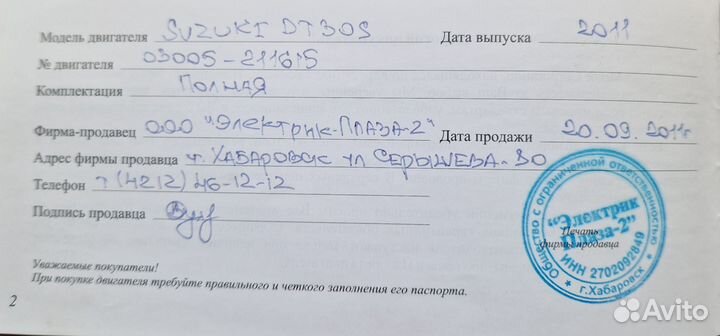 Модель двигателя SUZUKI DT30S Дата выпуска 2011
№ двигателя 03005-211615
Комплектация Полная
Фирма-продавец ООО "Электрик-Плаза-2" Дата продажи 20.09.2011г
Адрес фирмы продавца г. Хабаровск ул Серышева-80
Телефон т(4212) 46-12-12
Подпись продавца
Печать
фирмы продавца
Общество с ограниченной ответственностью
"Электрик
Плаза-2"
ИНН 2702092849
* г.Хабаровск *
Уважаемые покупатели!
При покупке двигателя требуйте правильного и четкого заполнения его паспорта.
2
Avito